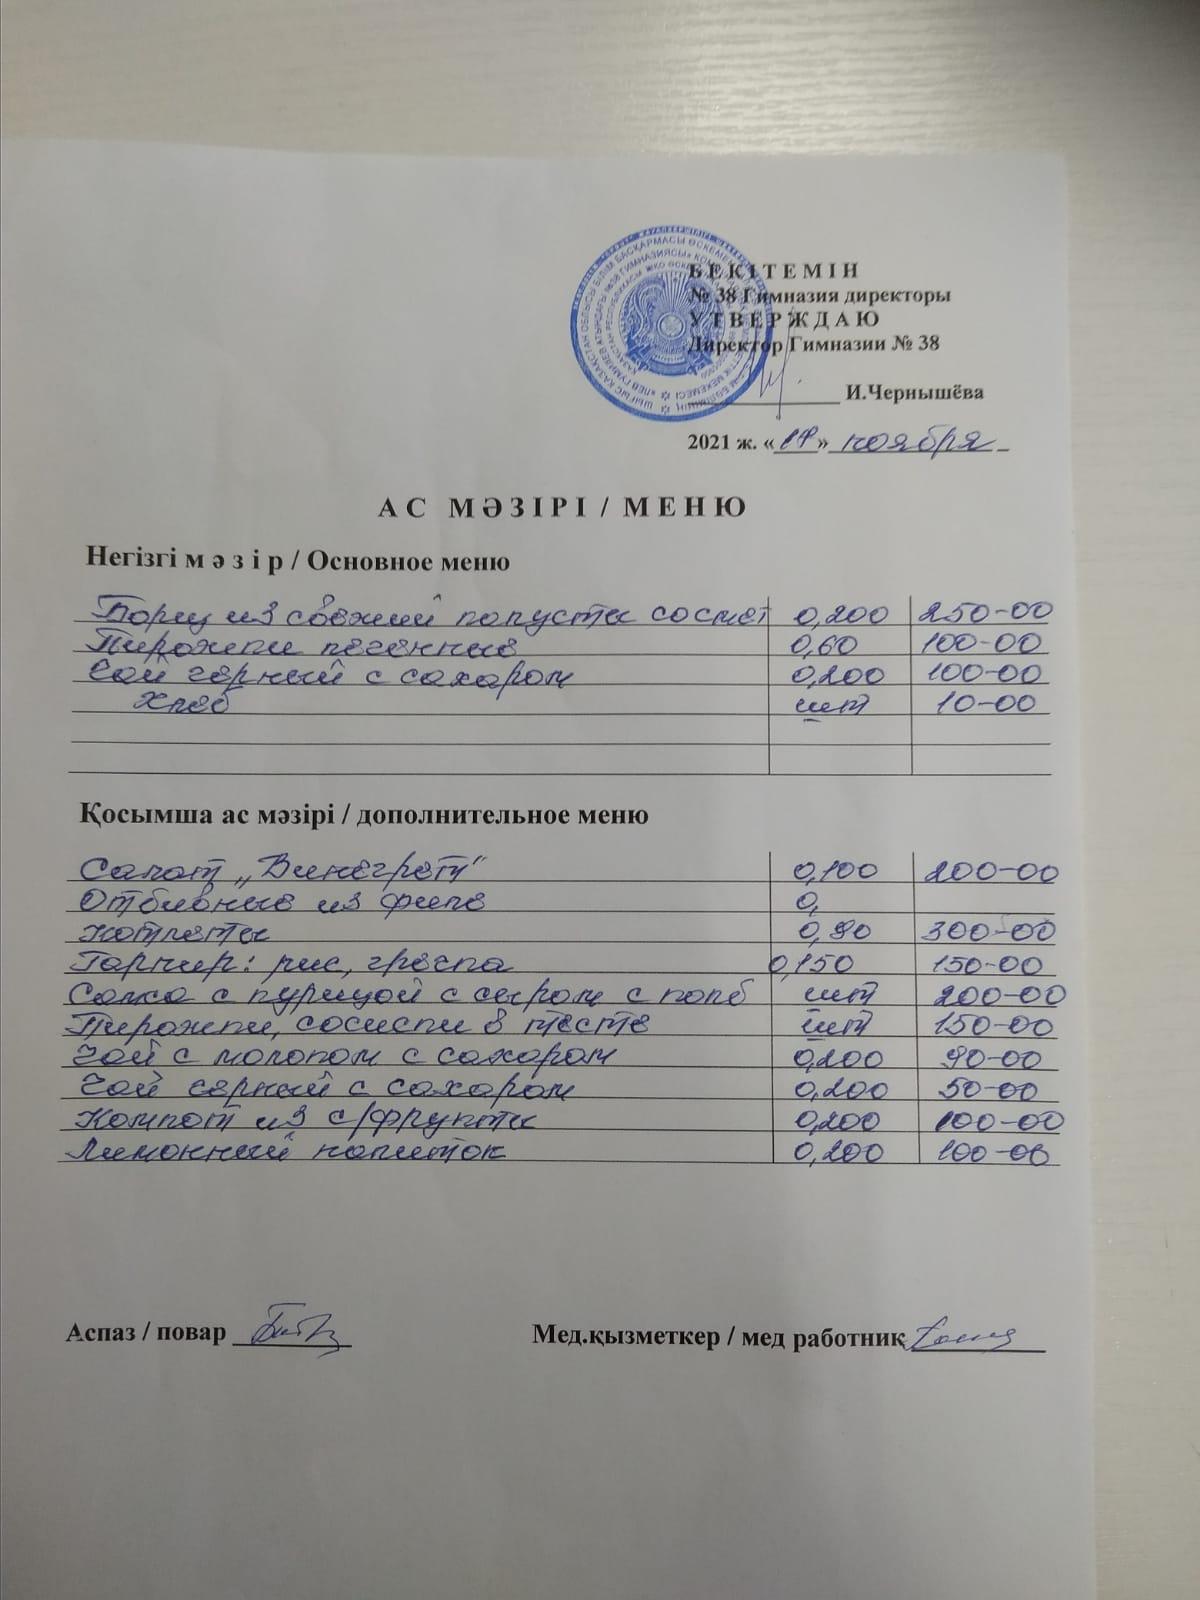 БЕКІТЕМІН
№ 38 Гимназия директоры
УТВЕРЖДАЮ
Директор Гимназии № 38
И.Чернышёва
2021 ж. «19» ноября
АС МӘЗІРІ / МЕНЮ
Негізгі м ә з і р / Основное меню
Борщ из свежий капусты со смет 0,200 250-00
Пирожки печенные 0,60 100-00
Чай черный с сахаром 0,200 100-00
Хлеб шт 10-00
Қосымша ас мәзірі / дополнительное меню
Салат „Винегрет" 0,100 200-00
Отбивные из филе 0,
Котлеты 0,90 300-00
Гарнир: рис, гречка 0,150 150-00
Самса с курицой с сыром с колб шт 200-00
Пирожки, сосиски в тесте шт 150-00
Чай с молоком с сахаром 0,200 90-00
Чай черный с сахаром 0,200 50-00
Компот из с/фрукты 0,200 100-00
Лимонный напиток 0,200 100-00
Аспаз / повар
Мед.қызметкер / мед работник